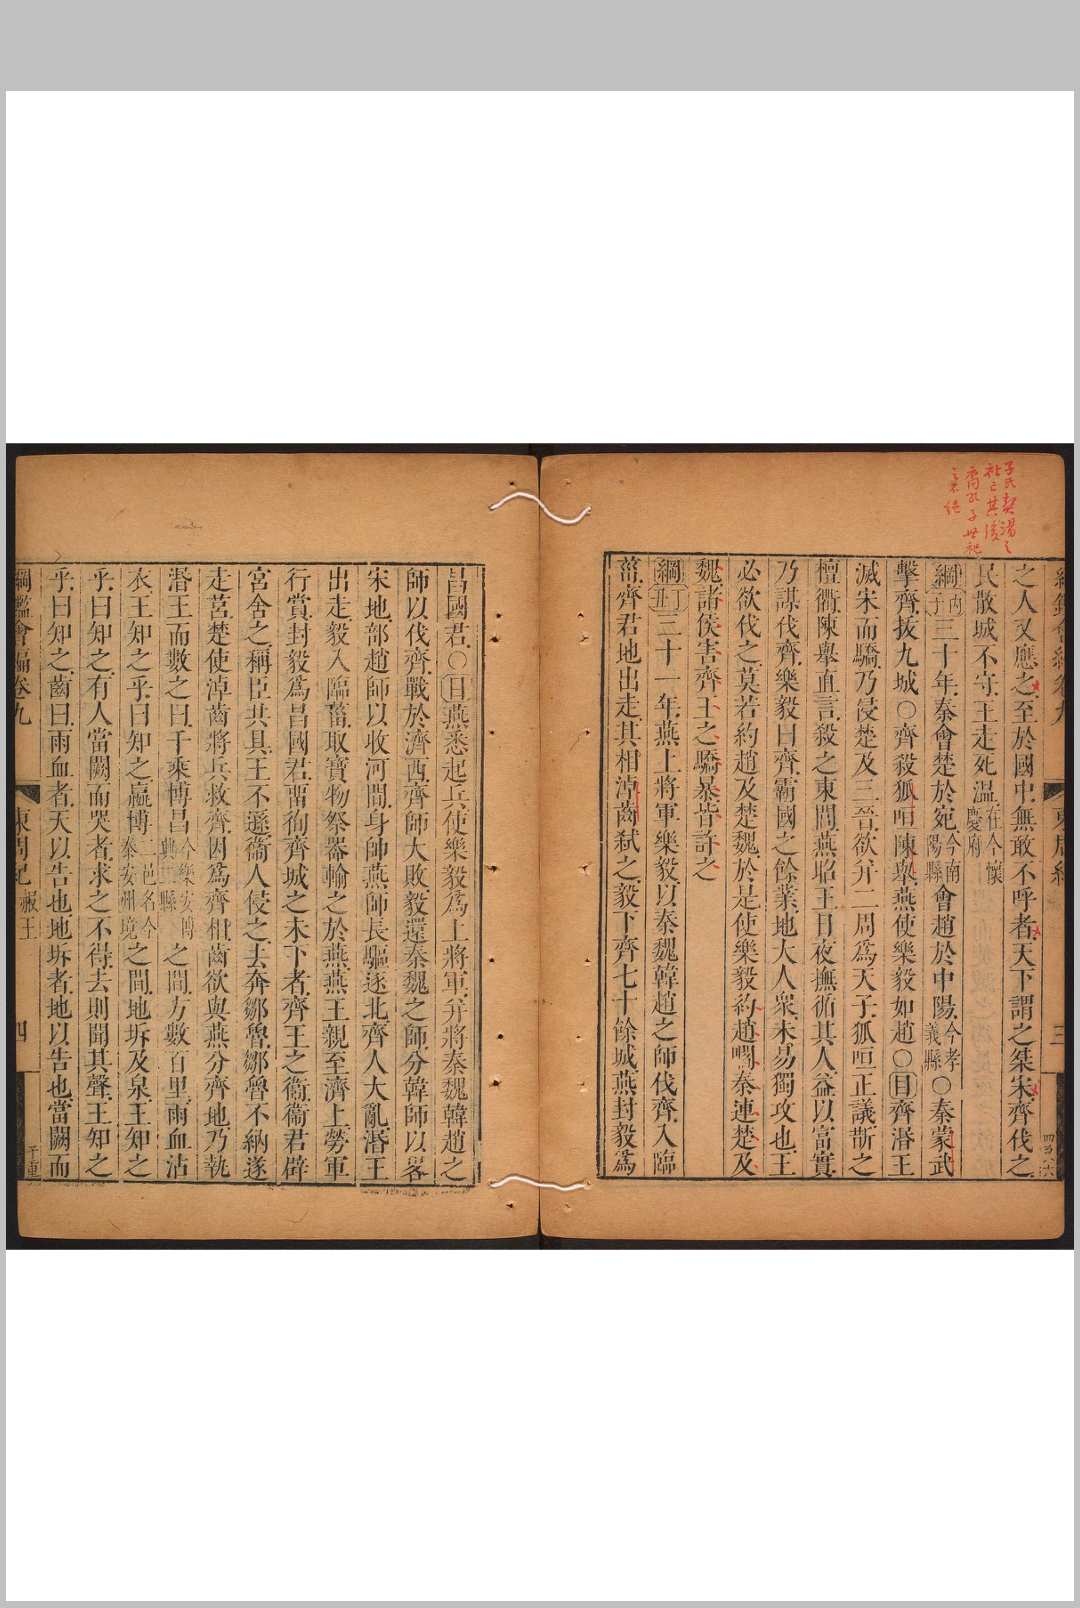 子氏契湯之
社亡其後
裔孔子世祀
之不絕
之人又應之至於國中無敢不呼者天下謂之桀宋齊伐之
民散城不守王走死溫在今懷慶府
綱丙子三十年秦會楚於宛今南陽縣會趙於中陽今孝義縣○秦蒙武
擊齊拔九城○齊殺狐咺陳舉燕使樂毅如趙○目齊湣王
滅宋而驕乃侵楚及三晉欲并二周爲天子狐咺正議斮之
檀衢陳舉直言殺之東閭燕昭王日夜撫循其人益以富實
乃謀伐齊樂毅曰齊霸國之餘業地大人衆未易獨攻也王
必欲伐之莫若約趙及楚魏於是使樂毅約趙啗秦連楚及
魏諸侯害齊王之驕暴皆許之
綱丁丑三十一年燕上將軍樂毅以秦魏韓趙之師伐齊入臨
菑齊君地出走其相淖齒弑之毅下齊七十餘城燕封毅爲
三
昌國君○目燕悉起兵使樂毅爲上將軍并將秦魏韓趙之
師以伐齊戰於濟西齊師大敗毅還秦魏之師分韓師以畧
宋地部趙師以收河間身帥燕師長驅逐北齊人大亂湣王
出走毅入臨菑取寶物祭器輸之於燕燕王親至濟上勞軍
行賞封毅爲昌國君留徇齊城之未下者齊王之衞衞君辟
宮舍之稱臣共具王不遜衞人侵之去奔鄒魯鄒魯不納遂
走莒楚使淖齒將兵救齊因爲齊相齒欲與燕分齊地乃執
湣王而數之曰千乘博昌今樂安博興二縣之間方數百里雨血沾
衣王知之乎曰知之嬴博二邑名今泰安州境之間地坼及泉王知之
乎曰知之有人當闕而哭者求之不得去則聞其聲王知之
乎曰知之齒曰雨血者天以告也地坼者地以告也當闕而
綱鑑會編卷九 東周紀 赧王 四